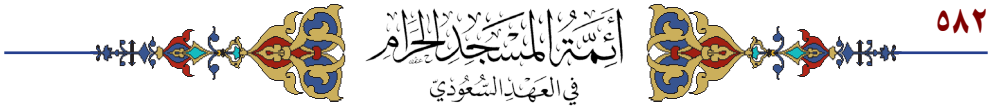 ٥٨٢
أَئِمَّةُ المَسْجِدِ الحَرَامِ
فِي العَهْدِ السُّعُودِيِّ